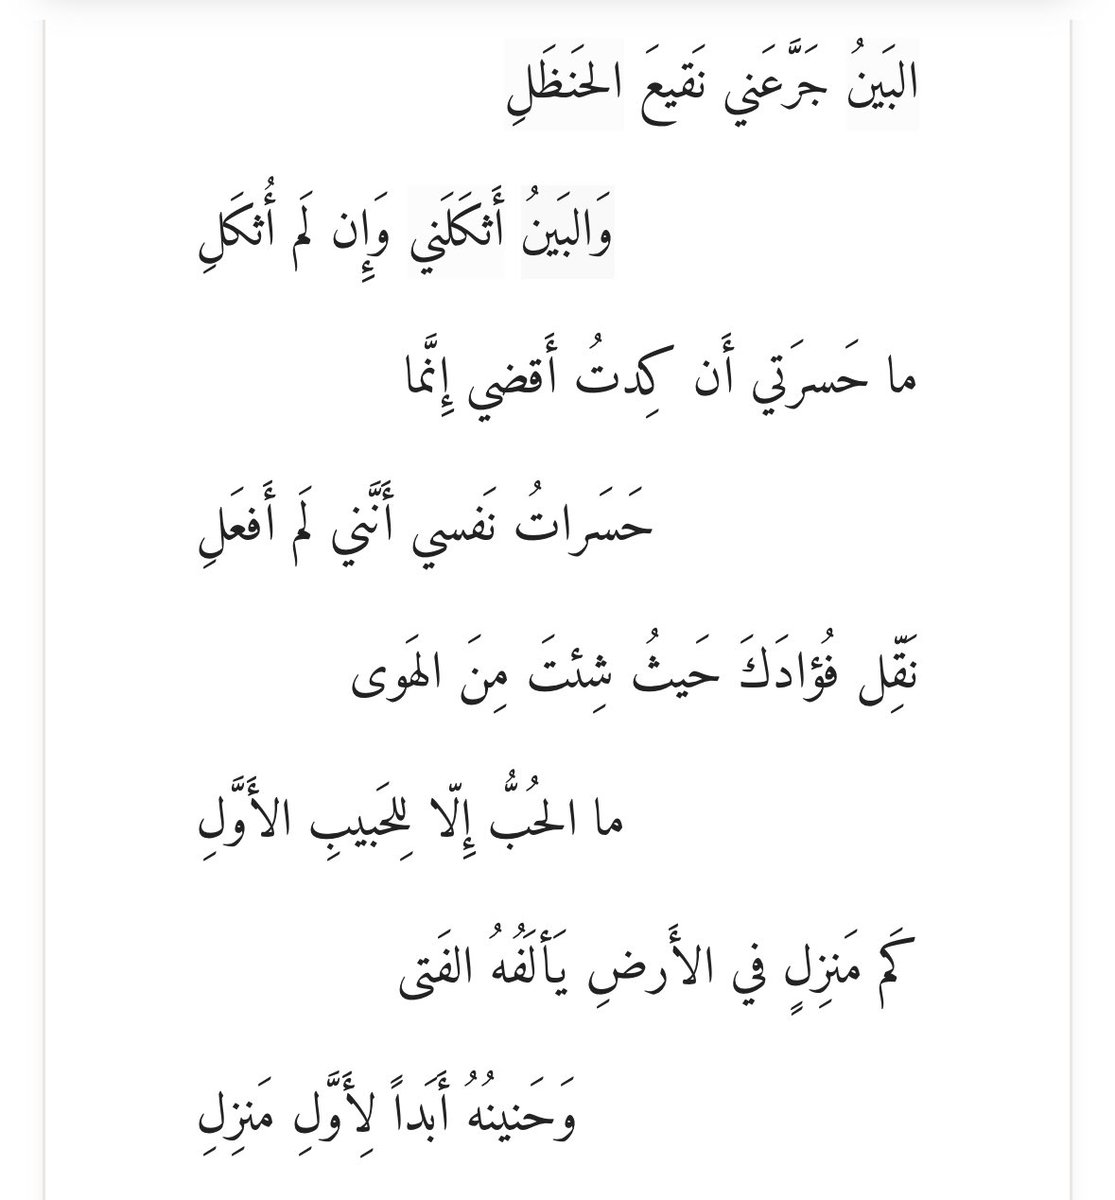 البَينُ جَرَّعَني نَقيعَ الحَنظَلِ
وَالبَينُ أَثكَلَني وَإِن لَم أُثكَلِ
ما حَسرَتي أَن كِدتُ أَقضي إِنَّما
حَسَراتُ نَفسي أَنَّني لَم أَفعَلِ
نَقِّل فُؤادَكَ حَيثُ شِئتَ مِنَ الهَوى
ما الحُبُّ إِلّا لِلحَبيبِ الأَوَّلِ
كَم مَنزِلٍ في الأَرضِ يَألَفُهُ الفَتى
وَحَنينُهُ أَبَداً لِأَوَّلِ مَنزِلِ